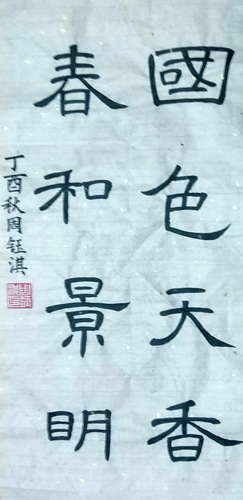 國色天香
春和景明
丁酉秋周钰淇